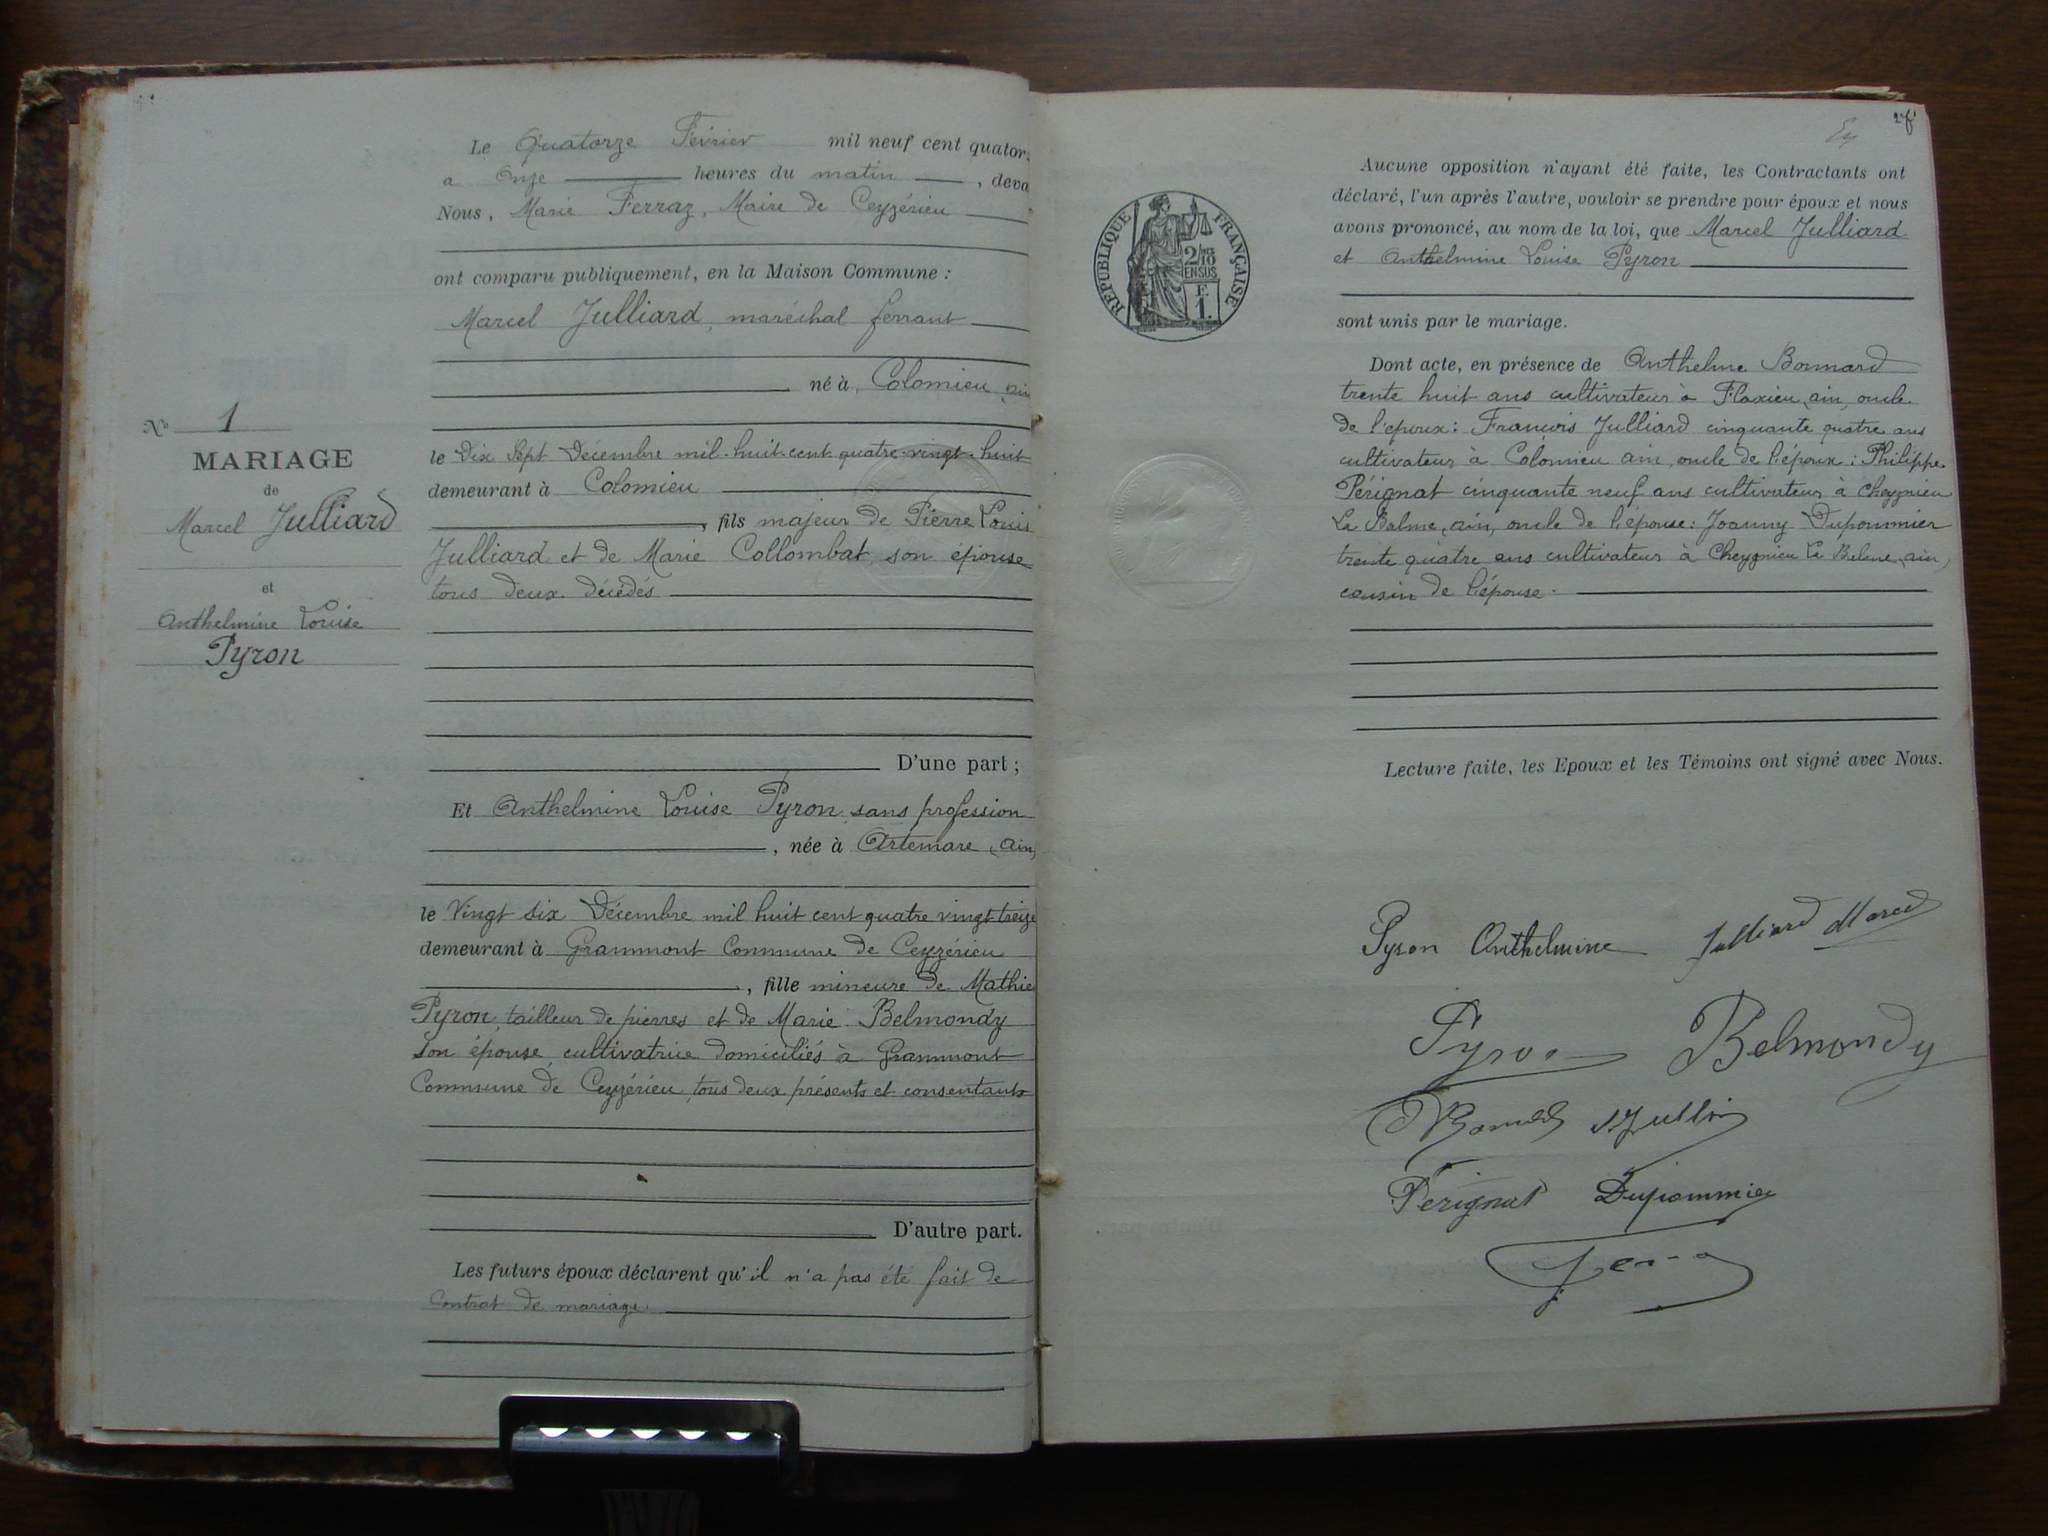 Le Quatorze Février mil neuf cent quator
a Onze heures du matin, deva
Nous, Marie Ferraz, Maire de Ceyzérieu
ont comparu publiquement, en la Maison Commune :
Marcel Julliard, maréchal ferrant
né à, Colomieu, ain
le Dix Sept Décembre mil huit cent quatre vingt huit
demeurant à Colomieu
, fils majeur de Pierre Louis
Julliard et de Marie Collombat son épouse
tous deux décédés
D'une part ;
Et Anthelmine Louise Pyron, sans profession
, née à Artemare (Ain)
le Vingt six Décembre mil huit cent quatre vingt treize
demeurant à Grammont Commune de Ceyzérieu
, fille mineure de Mathie
Pyron, tailleur de pierres et de Marie Belmondy
son épouse, cultivatrice domiciliés à Grammont
Commune de Ceyzérieu, tous deux présents et consentants
D'autre part.
Les futurs époux déclarent qu'il n'a pas été fait de
contrat de mariage
No 1
MARIAGE
de
Marcel Julliard
et
Anthelmine Louise
Pyron
RÉPUBLIQUE FRANÇAISE
2/10
EN SUS
F.
1.
Aucune opposition n'ayant été faite, les Contractants ont
déclaré, l'un après l'autre, vouloir se prendre pour époux et nous
avons prononcé, au nom de la loi, que Marcel Julliard
et Anthelmine Louise Pyron
sont unis par le mariage.
Dont acte, en présence de Anthelme Bonnard
trente huit ans cultivateur à Flaxieu, ain, oncle
de l'époux : François Julliard cinquante quatre ans
cultivateur à Colomieu ain, oncle de l'époux : Philippe
Pérignat cinquante neuf ans cultivateur à Cheygnieu
La Balme, ain, oncle de l'épouse : Joanny Dupommier
trente quatre ans cultivateur à Cheygnieu La Balme, ain,
cousin de l'épouse.
Lecture faite, les Epoux et les Témoins ont signé avec Nous.
Pyron Anthelmine Julliard Marcel
Pyron Belmondy
Perignat Dupommier